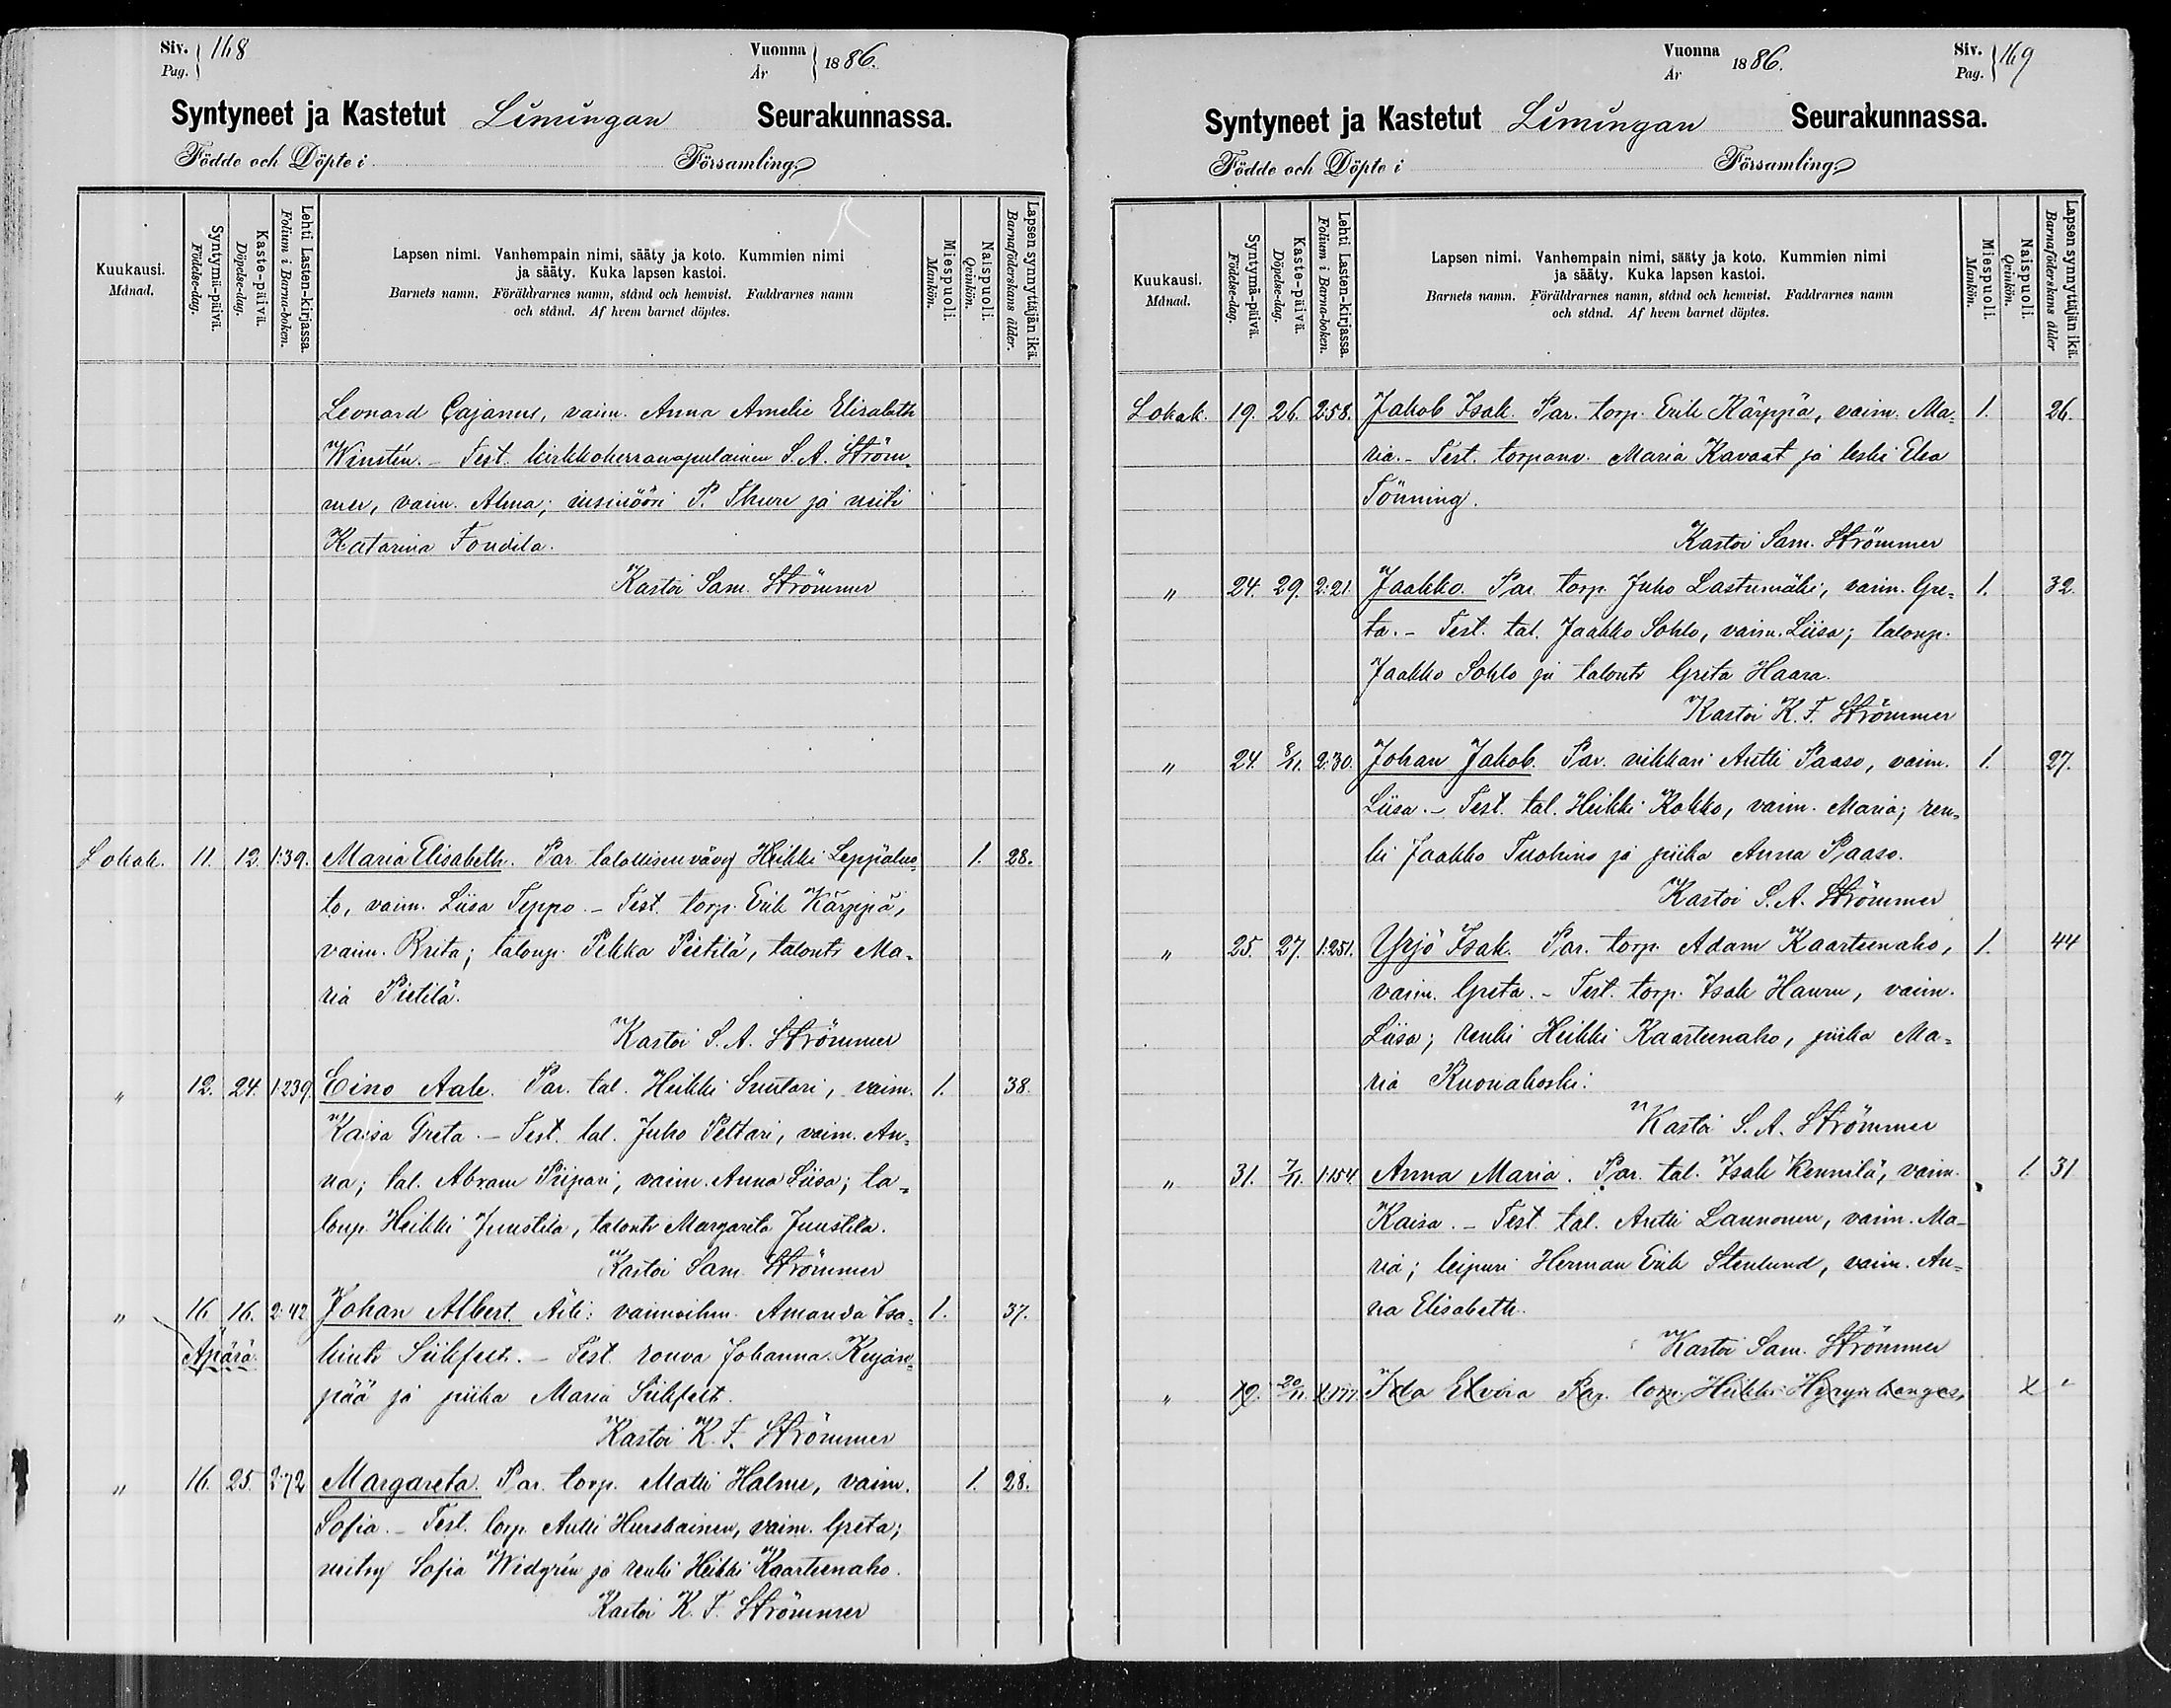 Siv. Pag. 168
Vuonna År 1886.
Syntyneet ja Kastetut Limingan Seurakunnassa.
Födde och Döpte i Församling.
Kuukausi. Månad.
Syntymä-päivä. Födelse-dag.
Kaste-päivä. Döpelse-dag.
Lehti Lasten-kirjassa. Folium i Barna-boken.
Lapsen nimi. Vanhempain nimi, sääty ja koto. Kummien nimi
ja sääty. Kuka lapsen kastoi.
Barnets namn. Föräldrarnes namn, stånd och hemvist. Faddrarnes namn
och stånd. Af hvem barnet döptes.
Miespuoli. Mankön.
Naispuoli. Qvinkön.
Lapsen synnyttäjän ikä. Barnaföderskans ålder.
Leonard Cajanus, vaim. Anna Amelie Elisabeth
Winstén. - Test. kirkkoherranapulainen S. A. Ström-
mer, vaim. Alma; insinööri P. Thure ja neiti
Katarina Fondila.
Kastoi Sam. Strömmer
Lokak. 11. 12. 1:39. Maria Elisabeth. Par. talollisen vävy Heikki Leppäluo-
to, vaim. Liisa Teppo. - Test. torp. Erik Kärppä,
vaim. Brita; talonp. Pekka Pietilä, talontr Ma-
ria Pietilä.
Kastoi S. A. Strömmer
" 12. 24. 1:239. Eino Aale. Par. tal. Heikki Suutari, vaim. 1. 38.
Kaisa Greta. - Test. tal. Juho Peltari, vaim. An-
na; tal. Abram Piipari, vaim. Anna Liisa; ta-
lonp. Heikki Juustila, talontr Margareta Juustila.
Kastoi Sam. Strömmer
" 16 16. 2:42 Johan Albert. Äiti: vaimoihm. Amanda Isa- 1. 37.
Äpärä. kintr Siikfelt. - Test. rouva Johanna
pää ja piika Maria Siikfelt.
Kastoi K. F. Strömmer
" 16. 25. 2:72 Margareta. Par. torp. Matti Halme, vaim. 1. 28.
Sofia. - Test. torp. Antti Hurskainen, vaim. Greta;
neitsy Sofia Widgrén ja renki Heikki Kaarteenaho.
Kastoi K. F. Strömmer
Vuonna År 1886.
Siv. Pag. 169
Syntyneet ja Kastetut Limingan Seurakunnassa.
Födde och Döpte i Församling.
Kuukausi. Månad.
Syntymä-päivä. Födelse-dag.
Kaste-päivä. Döpelse-dag.
Lehti Lasten-kirjassa. Folium i Barna-boken.
Lapsen nimi. Vanhempain nimi, sääty ja koto. Kummien nimi
ja sääty. Kuka lapsen kastoi.
Barnets namn. Föräldrarnes namn, stånd och hemvist. Faddrarnes namn
och stånd. Af hvem barnet döptes.
Miespuoli. Mankön.
Naispuoli. Qvinkön.
Lapsen synnyttäjän ikä. Barnaföderskans ålder
Lokak. 19. 26. 2:58. Jakob Isak. Par. torp. Erik Kärppä, vaim. Ma- 1. 26.
ria. - Test. torpanv. Maria Kavaat ja leski Elsa
Tönning.
Kastoi Sam. Strömmer
" 24. 29. 2:21 Jaakko. Par. torp. Juho Lastumäki, vaim. Gre- 1. 32.
ta. - Test. tal. Jaakko Sohlo, vaim. Liisa; talonp.
Jaakko Sohlo ja talontr Greta Haara.
Kastoi K. F. Strömmer
" 24. 8/11. 2:30. Johan Jakob. Par. nikkari Antti Paaso, vaim. 1. 27.
Liisa. - Test. tal. Heikki Kokko, vaim. Maria; ren-
ki Jaakko Tuohino ja piika Anna Paaso.
Kastoi S. A. Strömmer
" 25. 27. 1:251. Yrjö Isak. Par. torp. Adam Kaarteenaho, 1. 44
vaim. Greta. - Test. torp. Isak Hauru, vaim.
Liisa; renki Heikki Kaarteenaho, piika Ma-
ria Ruonakoski.
Kastoi S. A. Strömmer
" 31. 7/11. 1:154 Anna Maria. Par. tal. Isak Kennilä, vaim. 1. 31
Kaisa. - Test. tal. Antti Launonen, vaim. Ma-
ria; leipuri Herman Erik Stenlund, vaim. An-
na Elisabeth.
Kastoi Sam. Strömmer
" 19. 20/11. 1:177. Ida Elvira Par. torp. Heikki